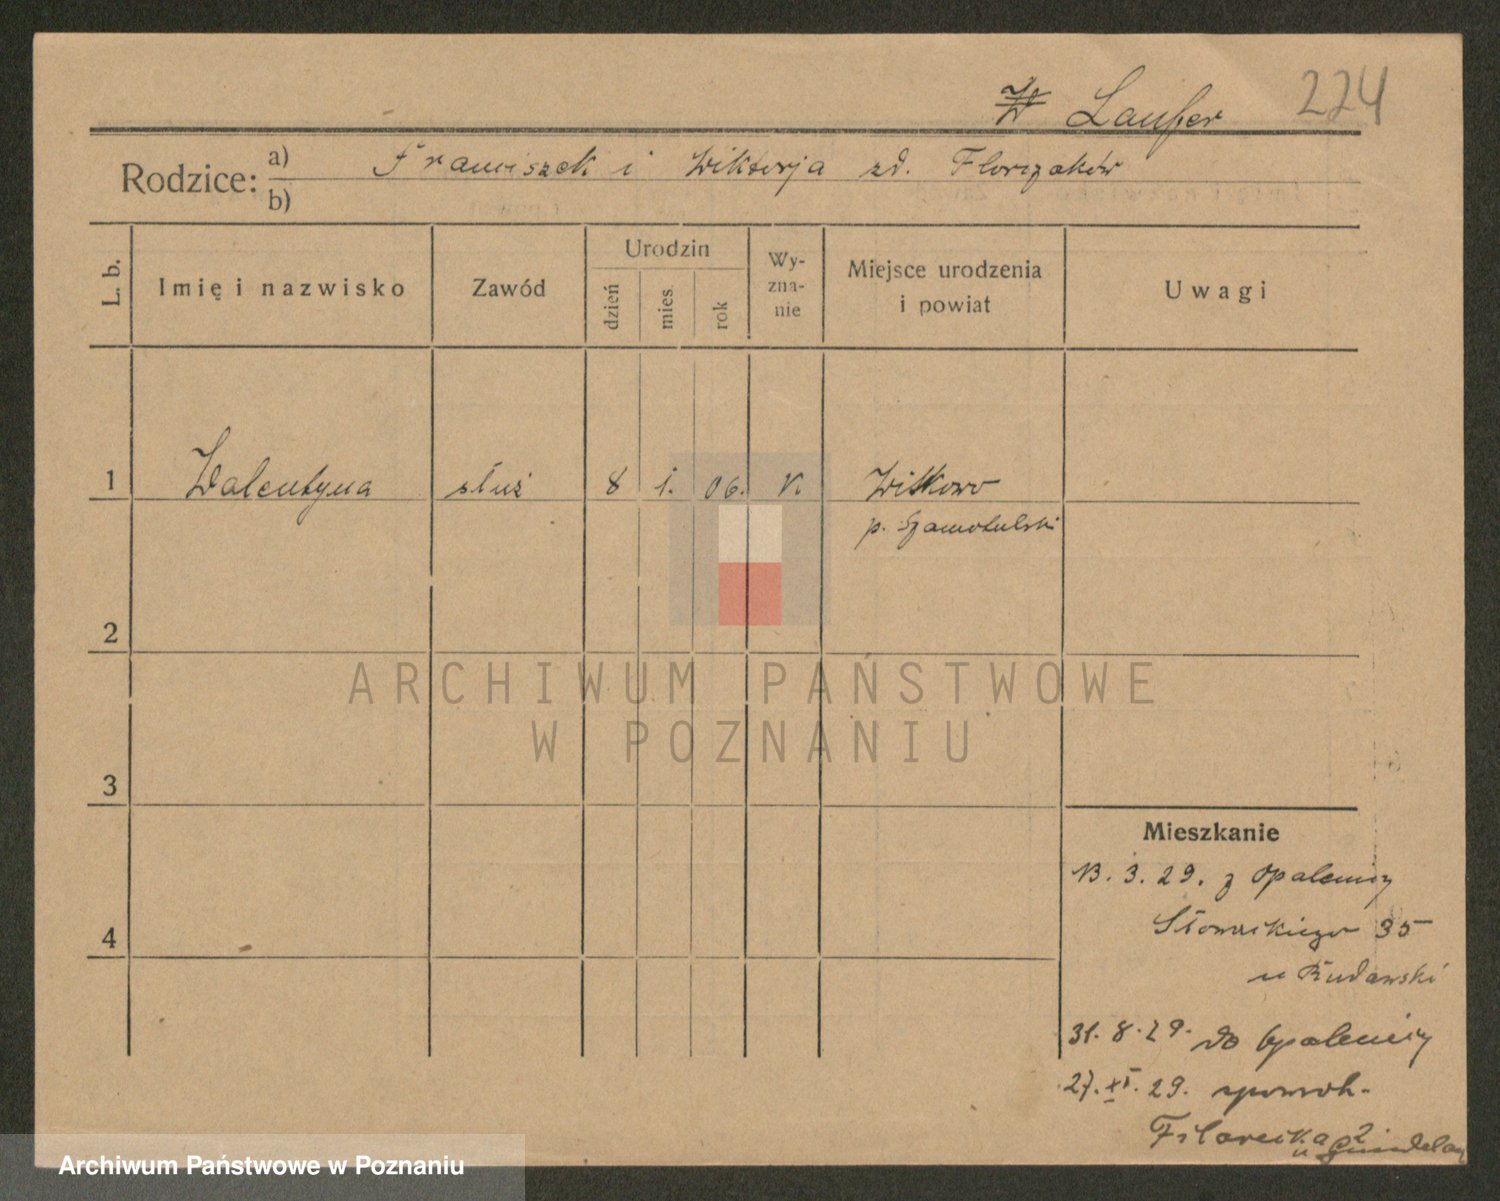 W Laufer 224
Rodzice: a) Franciszek i Wiktorja zd. Florczaków
b)
L. b. Imię i nazwisko Zawód Urodzin dzień mies. rok Wy-zna-nie Miejsce urodzenia i powiat Uwagi
1 Walentyna służ 8 1. 06. K. Witkowo
p. Szamotulski
2
ARCHIWUM PAŃSTWOWE
W POZNANIU
3
Mieszkanie
13. 3. 29. z Opalenicy
4
Słowackiego 35
u Rudawski
31. 8. 29. do Opalenicy
27. XI. 29. spowrot.
Filarecka 2
u
Archiwum Państwowe w Poznaniu